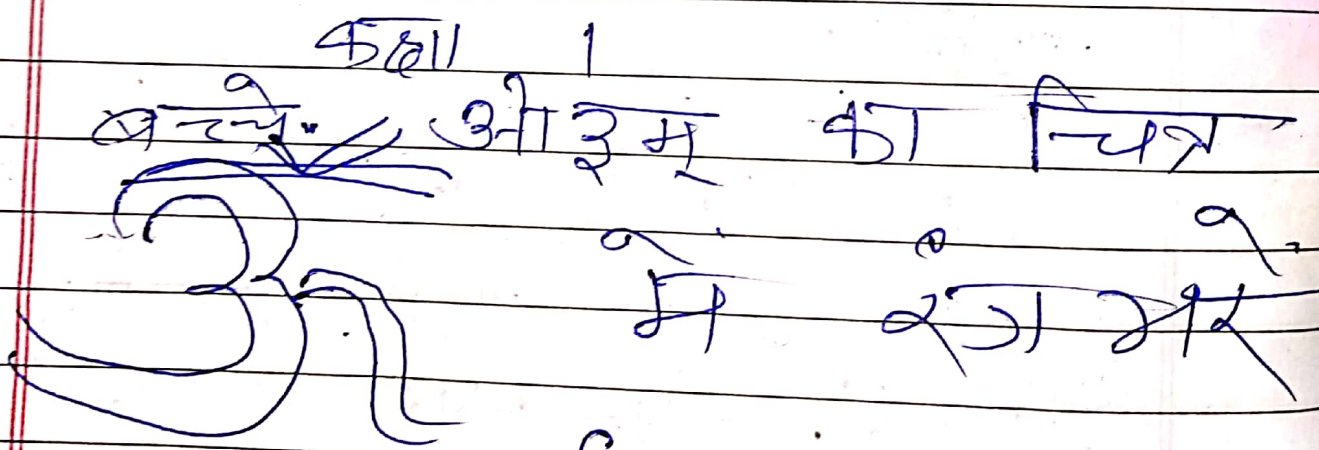 कक्षा 1
बच्चे ओ३म् का चित्र
में रंग भरें